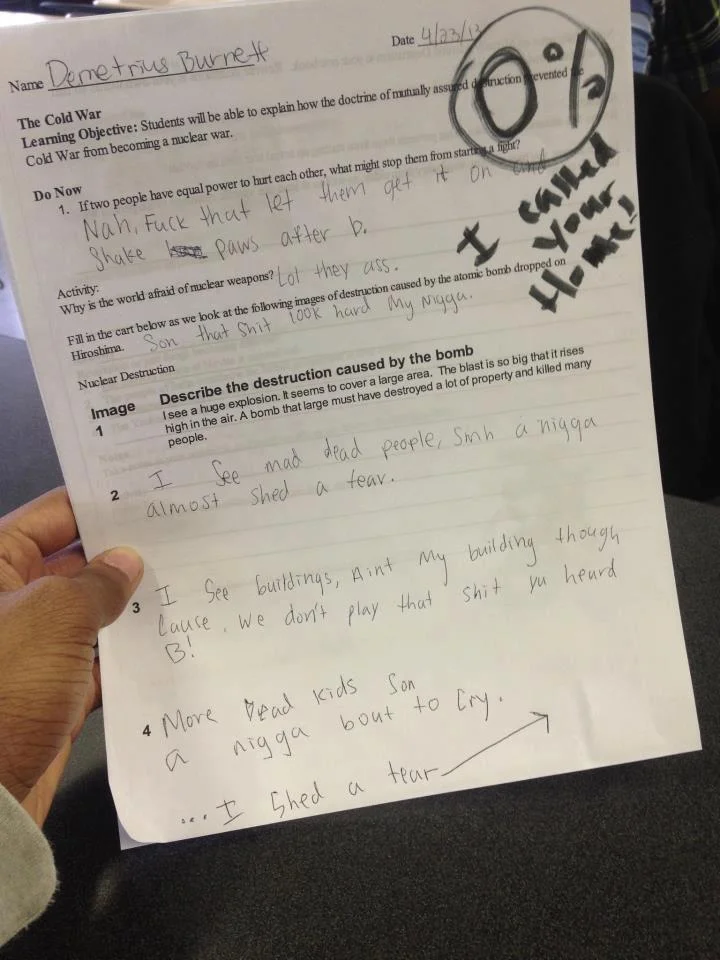 Name Demetrius Burnett
Date 4/23/13
0%
I called
your
Home!
The Cold War
Learning Objective: Students will be able to explain how the doctrine of mutually assured destruction prevented the
Cold War from becoming a nuclear war.
Do Now
1. If two people have equal power to hurt each other, what might stop them from starting a fight?
Nah, Fuck that let them get it on and
Shake paws after b.
Activity:
Why is the world afraid of nuclear weapons? Lol they ass.
Fill in the cart below as we look at the following images of destruction caused by the atomic bomb dropped on
Hiroshima. Son that shit look hard My nigga.
Nuclear Destruction
Image Describe the destruction caused by the bomb
1 I see a huge explosion. It seems to cover a large area. The blast is so big that it rises
high in the air. A bomb that large must have destroyed a lot of property and killed many
people.
2 I See mad dead people, Smh a nigga
almost shed a tear.
3 I See buildings, Aint My building though
Cause, we don't play that shit yu heard
B!
4 More Dead Kids Son
a nigga bout to Cry.
... I Shed a tear